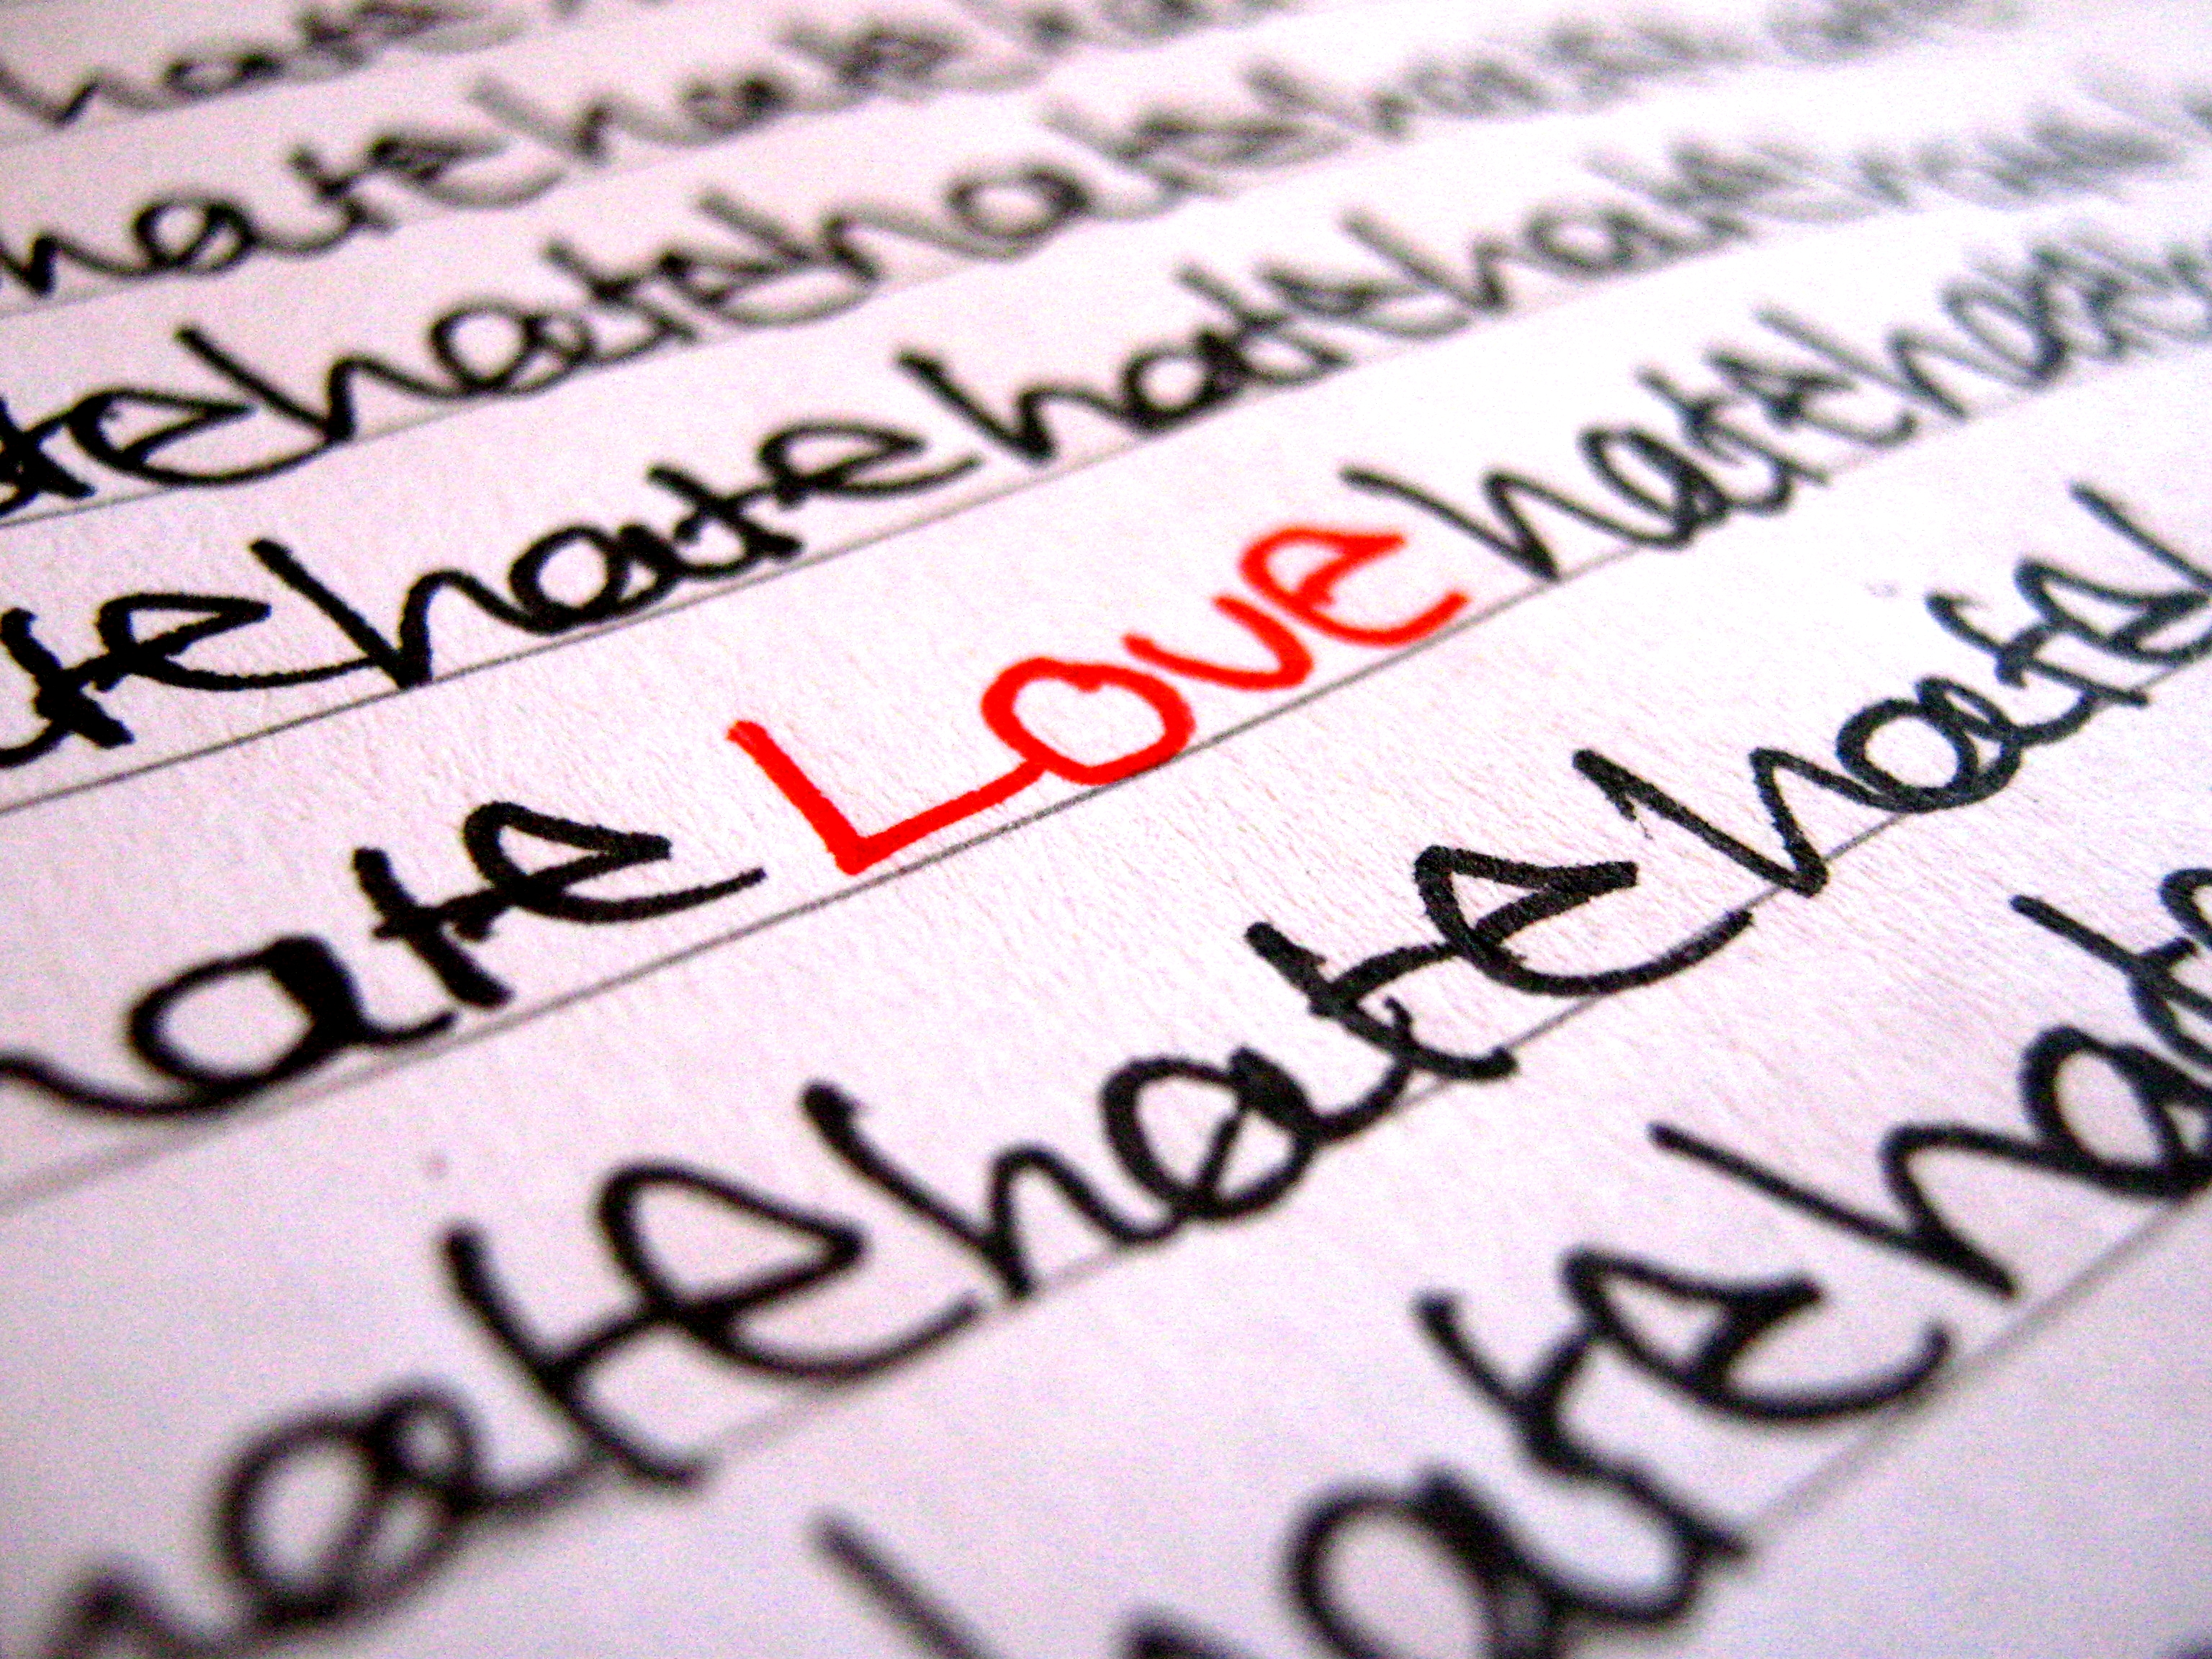 hate
hate hate
te hate hate ha
te hate hate hate hate
ate Love hate hate
hate hate hate
hate ha